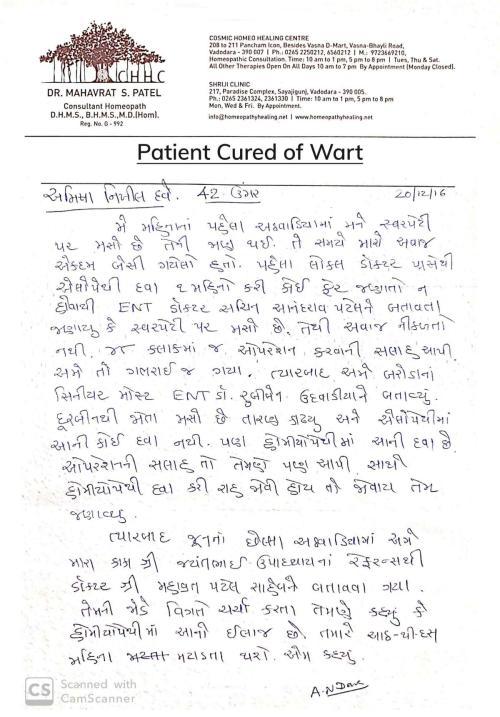 COSMIC HOMEO HEALING CENTRE
208 to 211 Pancham Icon, Besides Vasna D-Mart, Vasna-Bhayli Road,
Vadodara - 390 007 | Ph.: 0265 2250212, 6560212 | M.: 9723669210,
Homeopathic Consultation. Time: 10 am to 1 pm, 5 pm to 8 pm | Tues, Thu & Sat.
All Other Therapies Open On All Days 10 am to 7 pm By Appointment (Monday Closed).
CHHC
DR. MAHAVRAT S. PATEL
Consultant Homeopath
D.H.M.S., B.H.M.S.,M.D.(Hom).
Reg. No. G - 992
SHRIJI CLINIC
217, Paradise Complex, Sayajigunj, Vadodara - 390 005.
Ph.: 0265 2361324, 2361330 | Time: 10 am to 1 pm, 5 pm to 8 pm
Mon, Wed & Fri. By Appointment.
info@homeopathyhealing.net | www.homeopathyhealing.net
Patient Cured of Wart
અમિષા નિખીલ દવે. 42 ઉંમર 20/12/16
મે મહિનાનાં પહેલા અઠવાડિયામાં મને સ્વરપેટી
પર મસો છે તેની જાણ થઈ. તે સમયે મારો અવાજ
એકદમ બેસી ગયેલો હતો. પહેલા લોકલ ડોક્ટર પાસેથી
એલોપેથી દવા ૨ મહિનો કરી કોઈ ફેર જણાતો ન
હોવાથી ENT ડોક્ટર સચિન આનંદરાવ પટેલને બતાવતા
જણાવ્યુ કે સ્વરપેટી પર મસો છે. તેથી અવાજ નીકળતો
નથી. ૪૮ કલાકમાં જ ઓપરેશન કરવાની સલાહ આપી.
અમે તો ગભરાઈ જ ગયા. ત્યારબાદ અમે બરોડાનાં
સિનીયર મોસ્ટ ENT ડૉ. રુબીબેન ઉદવાડીયાને બતાવ્યું.
દૂરબીનથી જોતા મસો છે તારણ કાઢ્યુ અને એલોપેથીમાં
આની કોઈ દવા નથી. પણ હોમીયોપેથીમાં આની દવા છે
ઓપરેશનની સલાહ તો તેમણે પણ આપી. સાથે
હોમીયોપેથી દવા કરી રાહ જોવી હોય તો જોવાય તેમ
જણાવ્યુ.
ત્યારબાદ જૂનનાં છેલ્લા અઠવાડિયામાં અમે
મારા કાકા શ્રી જયંતભાઈ ઉપાધ્યાયનાં રેફરન્સથી
ડોક્ટર શ્રી મહાવ્રત પટેલ સાહેબને બતાવવા ગયા.
તેમની જોડે વિગતે ચર્ચા કરતા તેમણે કહ્યું કે
હોમીયોપેથીમાં આની ઈલાજ છે. તમારે આઠ-થી-દસ
મહિના મટાડતા થશે. એમ કહ્યુ.
A.N Dave
CS Scanned with
CamScanner